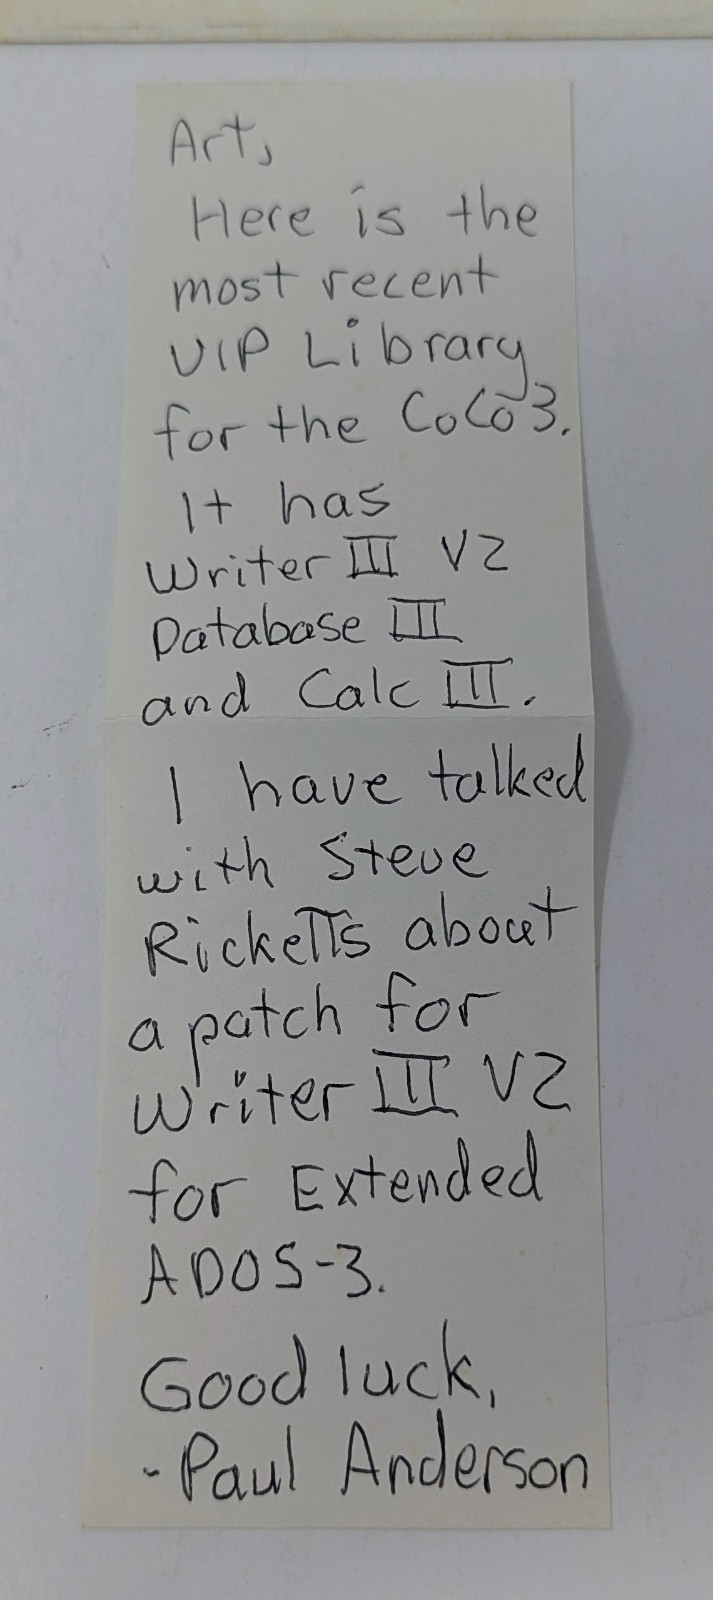 Art,
Here is the
most recent
VIP Library
for the CoCo3.
It has
Writer III V2
Database III
and Calc III.
I have talked
with Steve
Ricketts about
a patch for
Writer III V2
for Extended
ADOS-3.
Good luck,
- Paul Anderson